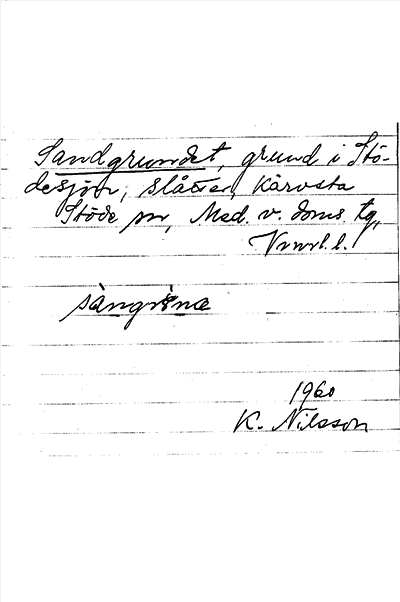 Sandgrundet, grund i Stö-
desjön, slåtter, Kärvsta
Stöde sn, Med. v. doms. tg,
Vnrl. l.
sàngrùna
1960
K. Nilsson